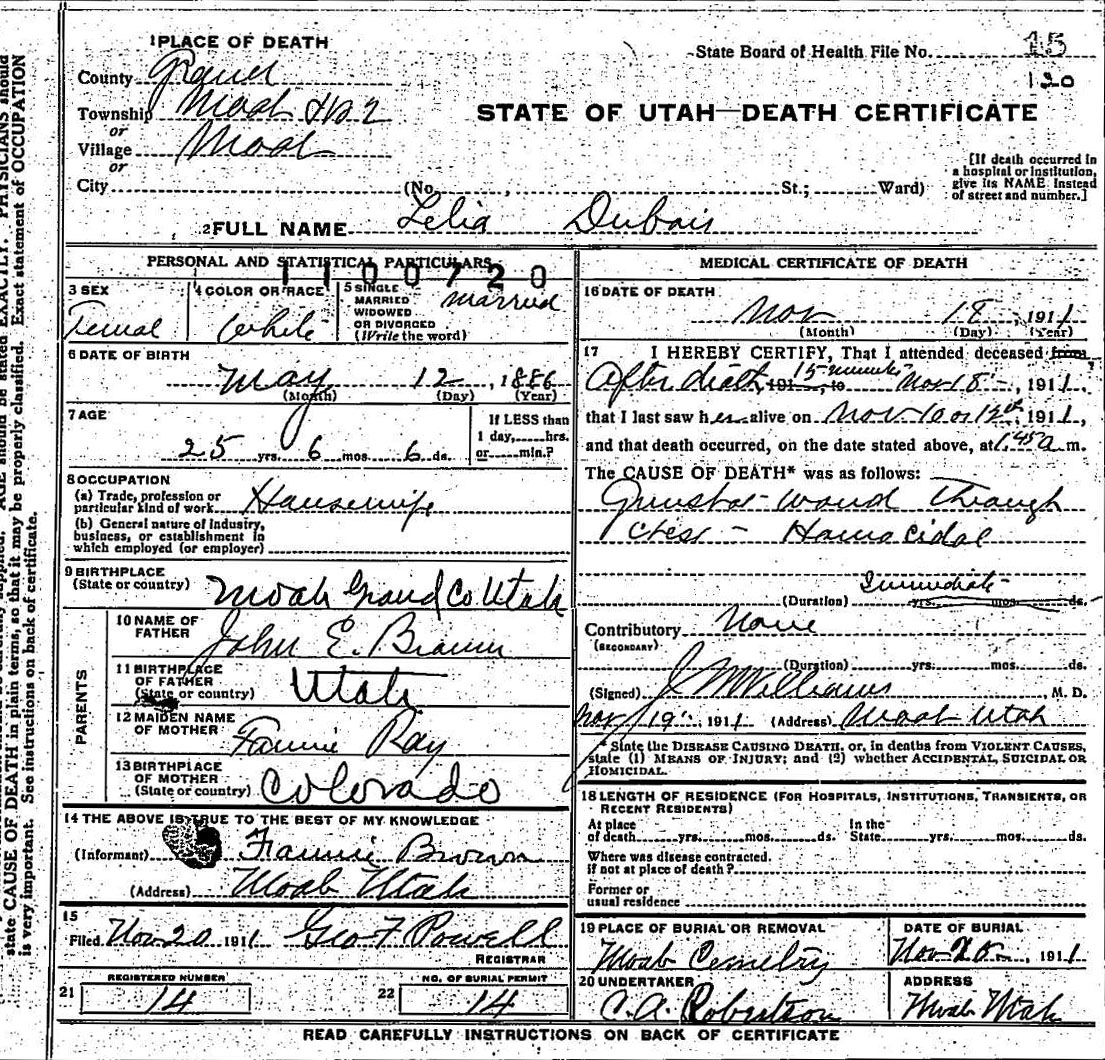 state CAUSE OF DEATH in plain terms, so that it may be properly classified. Exact statement of OCCUPATION
is very important. See instructions on back of certificate.
1 PLACE OF DEATH
State Board of Health File No. 15
120
County Grand
Township Moab
or
Village Moab
or
City (No. , St.; Ward)
STATE OF UTAH—DEATH CERTIFICATE
[If death occurred in
a hospital or institution,
give its NAME instead
of street and number.]
2 FULL NAME Lelia Dubois
PERSONAL AND STATISTICAL PARTICULARS
1100720
3 SEX
Femal
4 COLOR OR RACE
White
5 SINGLE
MARRIED
WIDOWED
OR DIVORCED
(Write the word)
Married
6 DATE OF BIRTH
May 12, 1886
(Month) (Day) (Year)
7 AGE
25 yrs. 6 mos. 6 ds.
If LESS than
1 day, hrs.
or min.?
8 OCCUPATION
(a) Trade, profession or
particular kind of work Housewife
(b) General nature of industry,
business, or establishment in
which employed (or employer)
9 BIRTHPLACE
(State or country) Moab Grand Co Utah
PARENTS
10 NAME OF
FATHER John E. Brown
11 BIRTHPLACE
OF FATHER
(State or country) Utah
12 MAIDEN NAME
OF MOTHER Fannie Ray
13 BIRTHPLACE
OF MOTHER
(State or country) Colorado
14 THE ABOVE IS TRUE TO THE BEST OF MY KNOWLEDGE
(Informant) Fannie Brown
(Address) Moab Utah
15
Filed Nov 20 1911 Geo F Powell
REGISTRAR
REGISTERED NUMBER
21 14
NO. OF BURIAL PERMIT
22 14
MEDICAL CERTIFICATE OF DEATH
16 DATE OF DEATH
Nov 18, 1911
(Month) (Day) (Year)
17 I HEREBY CERTIFY, That I attended deceased from
After death, 191 15 minutes to Nov 18, 1911,
that I last saw her alive on Nov 10 or 12th, 1911,
and that death occurred, on the date stated above, at 1.45 a m.
The CAUSE OF DEATH* was as follows:
Gunshot wound Through
Chest - Homacidal
Immediate
(Duration) yrs. mos. ds.
Contributory None
(SECONDARY)
(Duration) yrs. mos. ds.
(Signed) J W Williams, M. D.
Nov 19, 1911 (Address) Moab Utah
* State the DISEASE CAUSING DEATH, or, in deaths from VIOLENT CAUSES,
state (1) MEANS OF INJURY; and (2) whether ACCIDENTAL, SUICIDAL OR
HOMICIDAL.
18 LENGTH OF RESIDENCE (FOR HOSPITALS, INSTITUTIONS, TRANSIENTS, OR
RECENT RESIDENTS)
At place
of death yrs. mos. ds.
In the
State yrs. mos. ds.
Where was disease contracted,
if not at place of death?
Former or
usual residence
19 PLACE OF BURIAL OR REMOVAL
Moab Cemetry
DATE OF BURIAL
Nov 20, 1911
20 UNDERTAKER
C. A. Robertson
ADDRESS
Moab Utah
READ CAREFULLY INSTRUCTIONS ON BACK OF CERTIFICATE